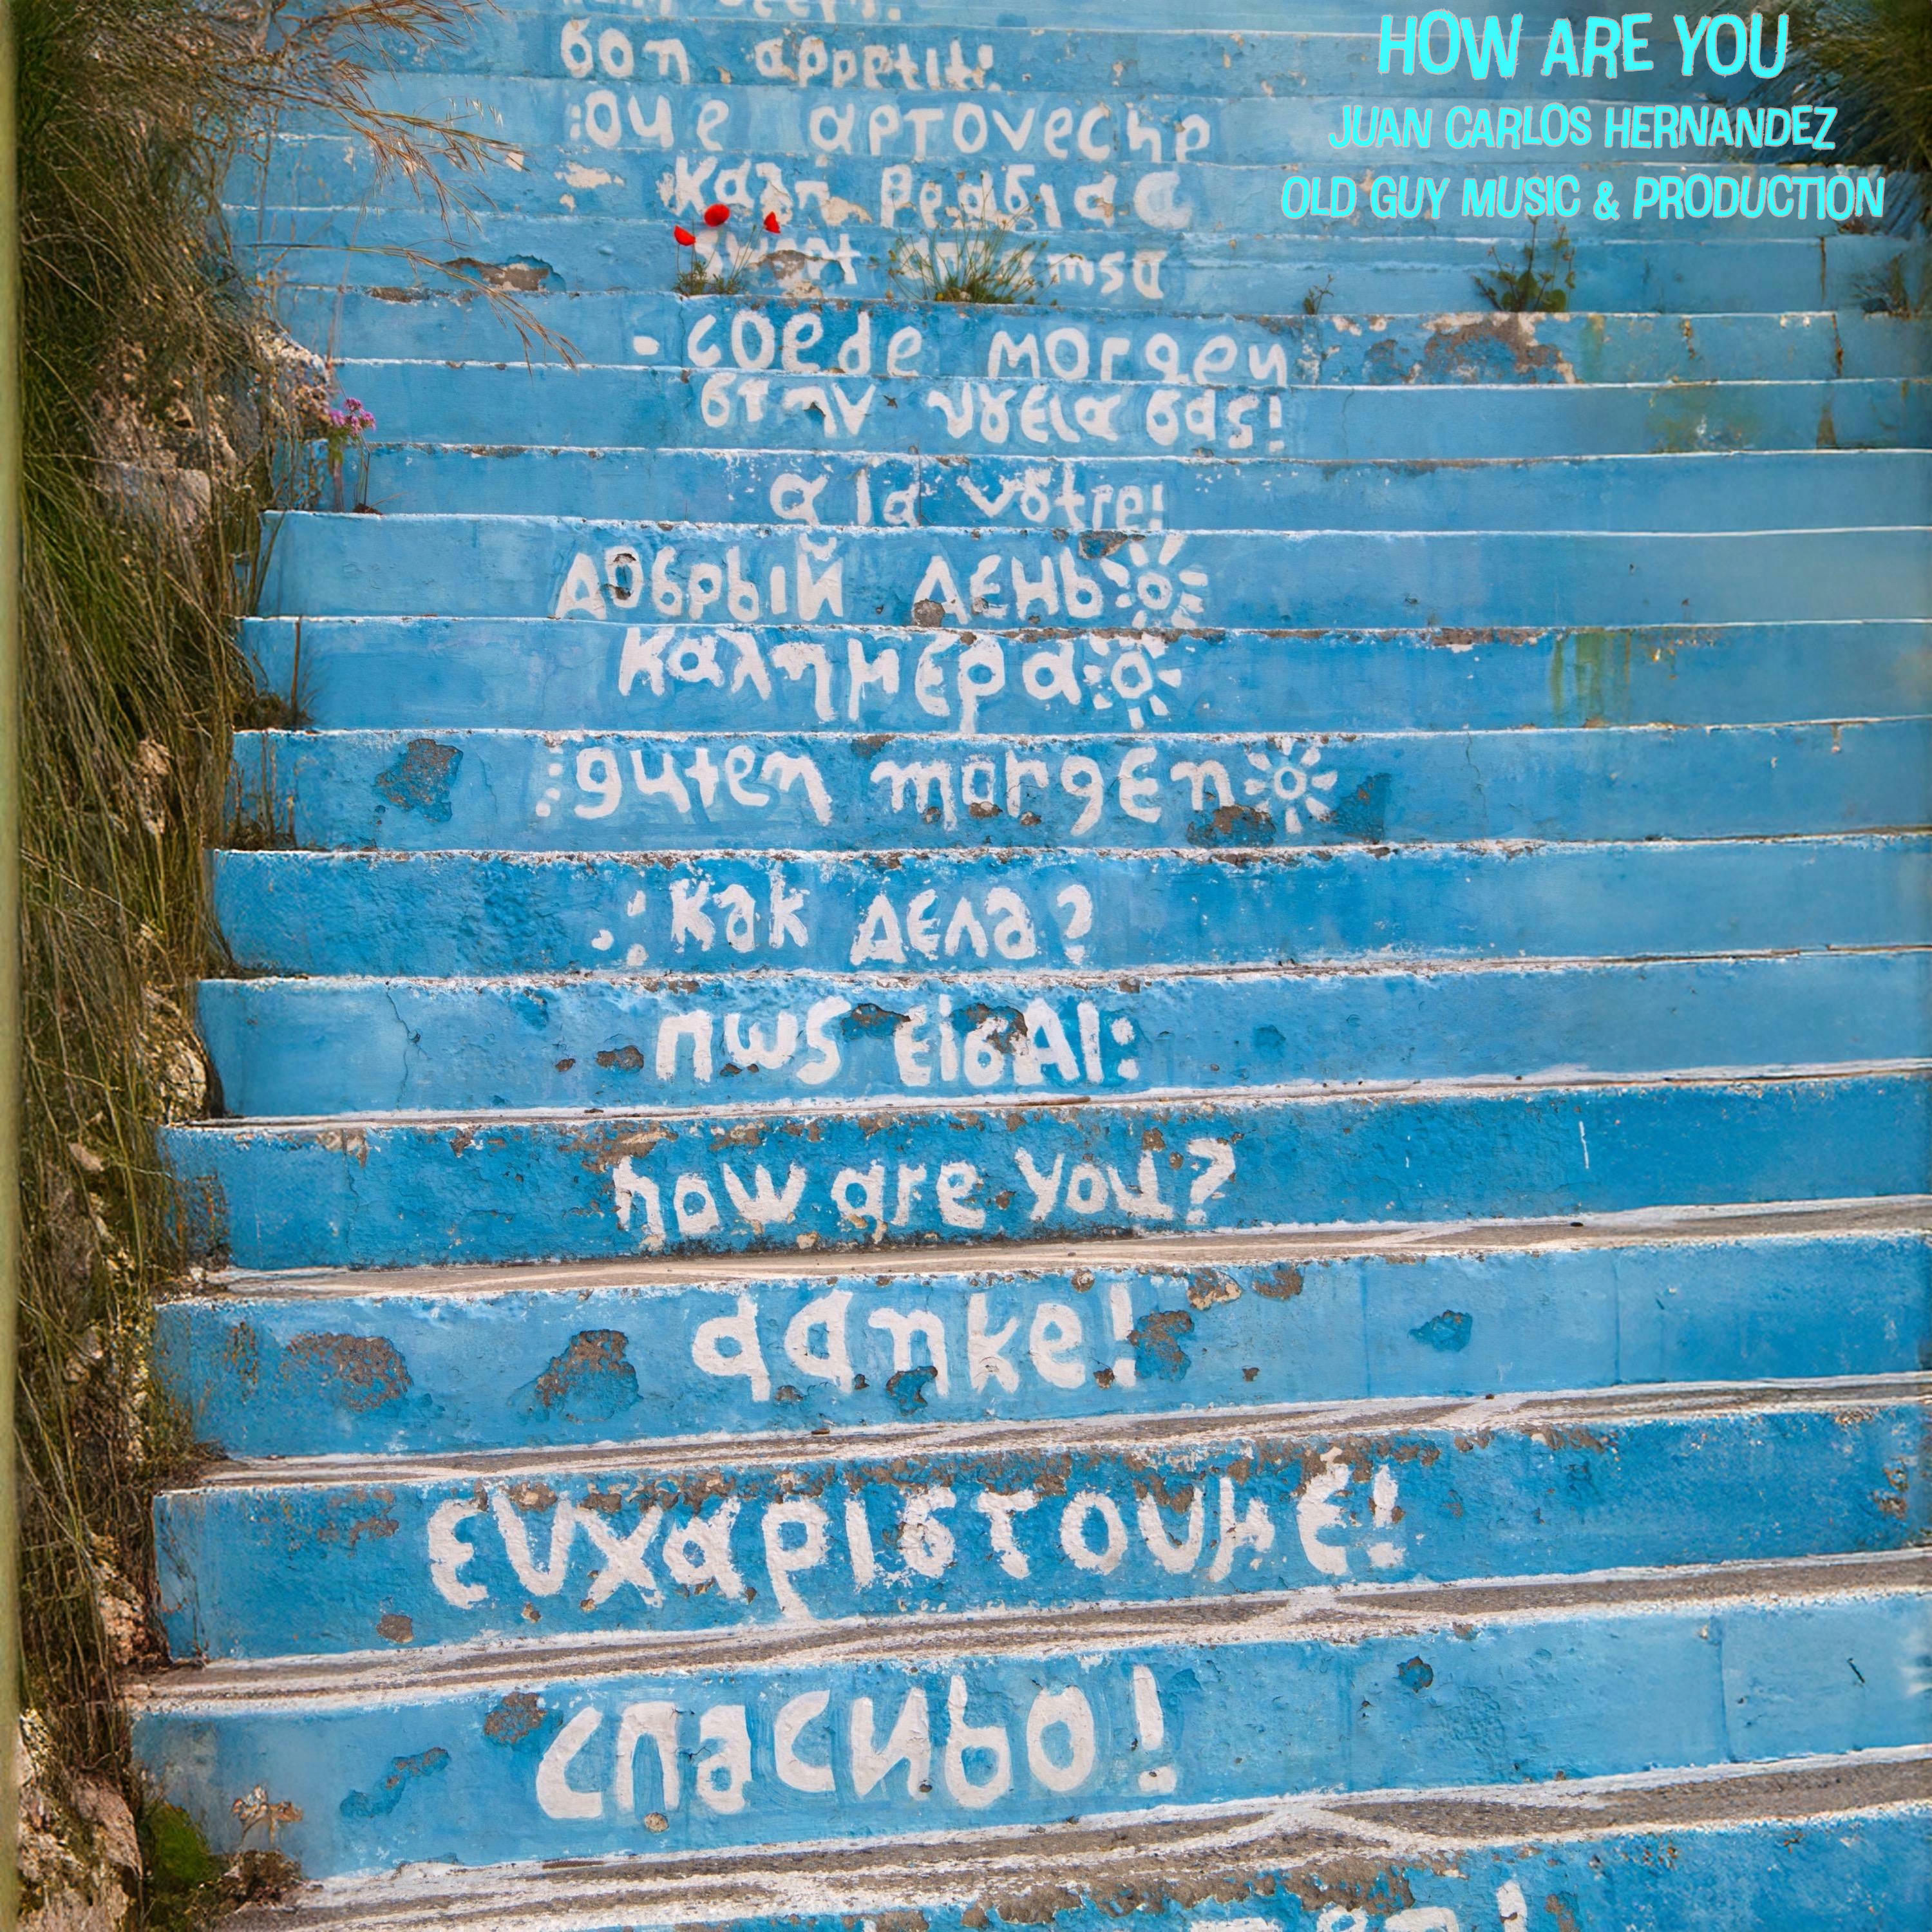 HOW ARE YOU
JUAN CARLOS HERNANDEZ
OLD GUY MUSIC & PRODUCTION
bon appetit!
¡que aproveche
καλη βραδια
- goede morgen
στην υγεια σας!
a la vôtre!
добрый день
καλημέρα
guten morgen
как дела?
πως είσΑΙ:
how are you?
danke!
ευχαριστουμε!
спасибо!